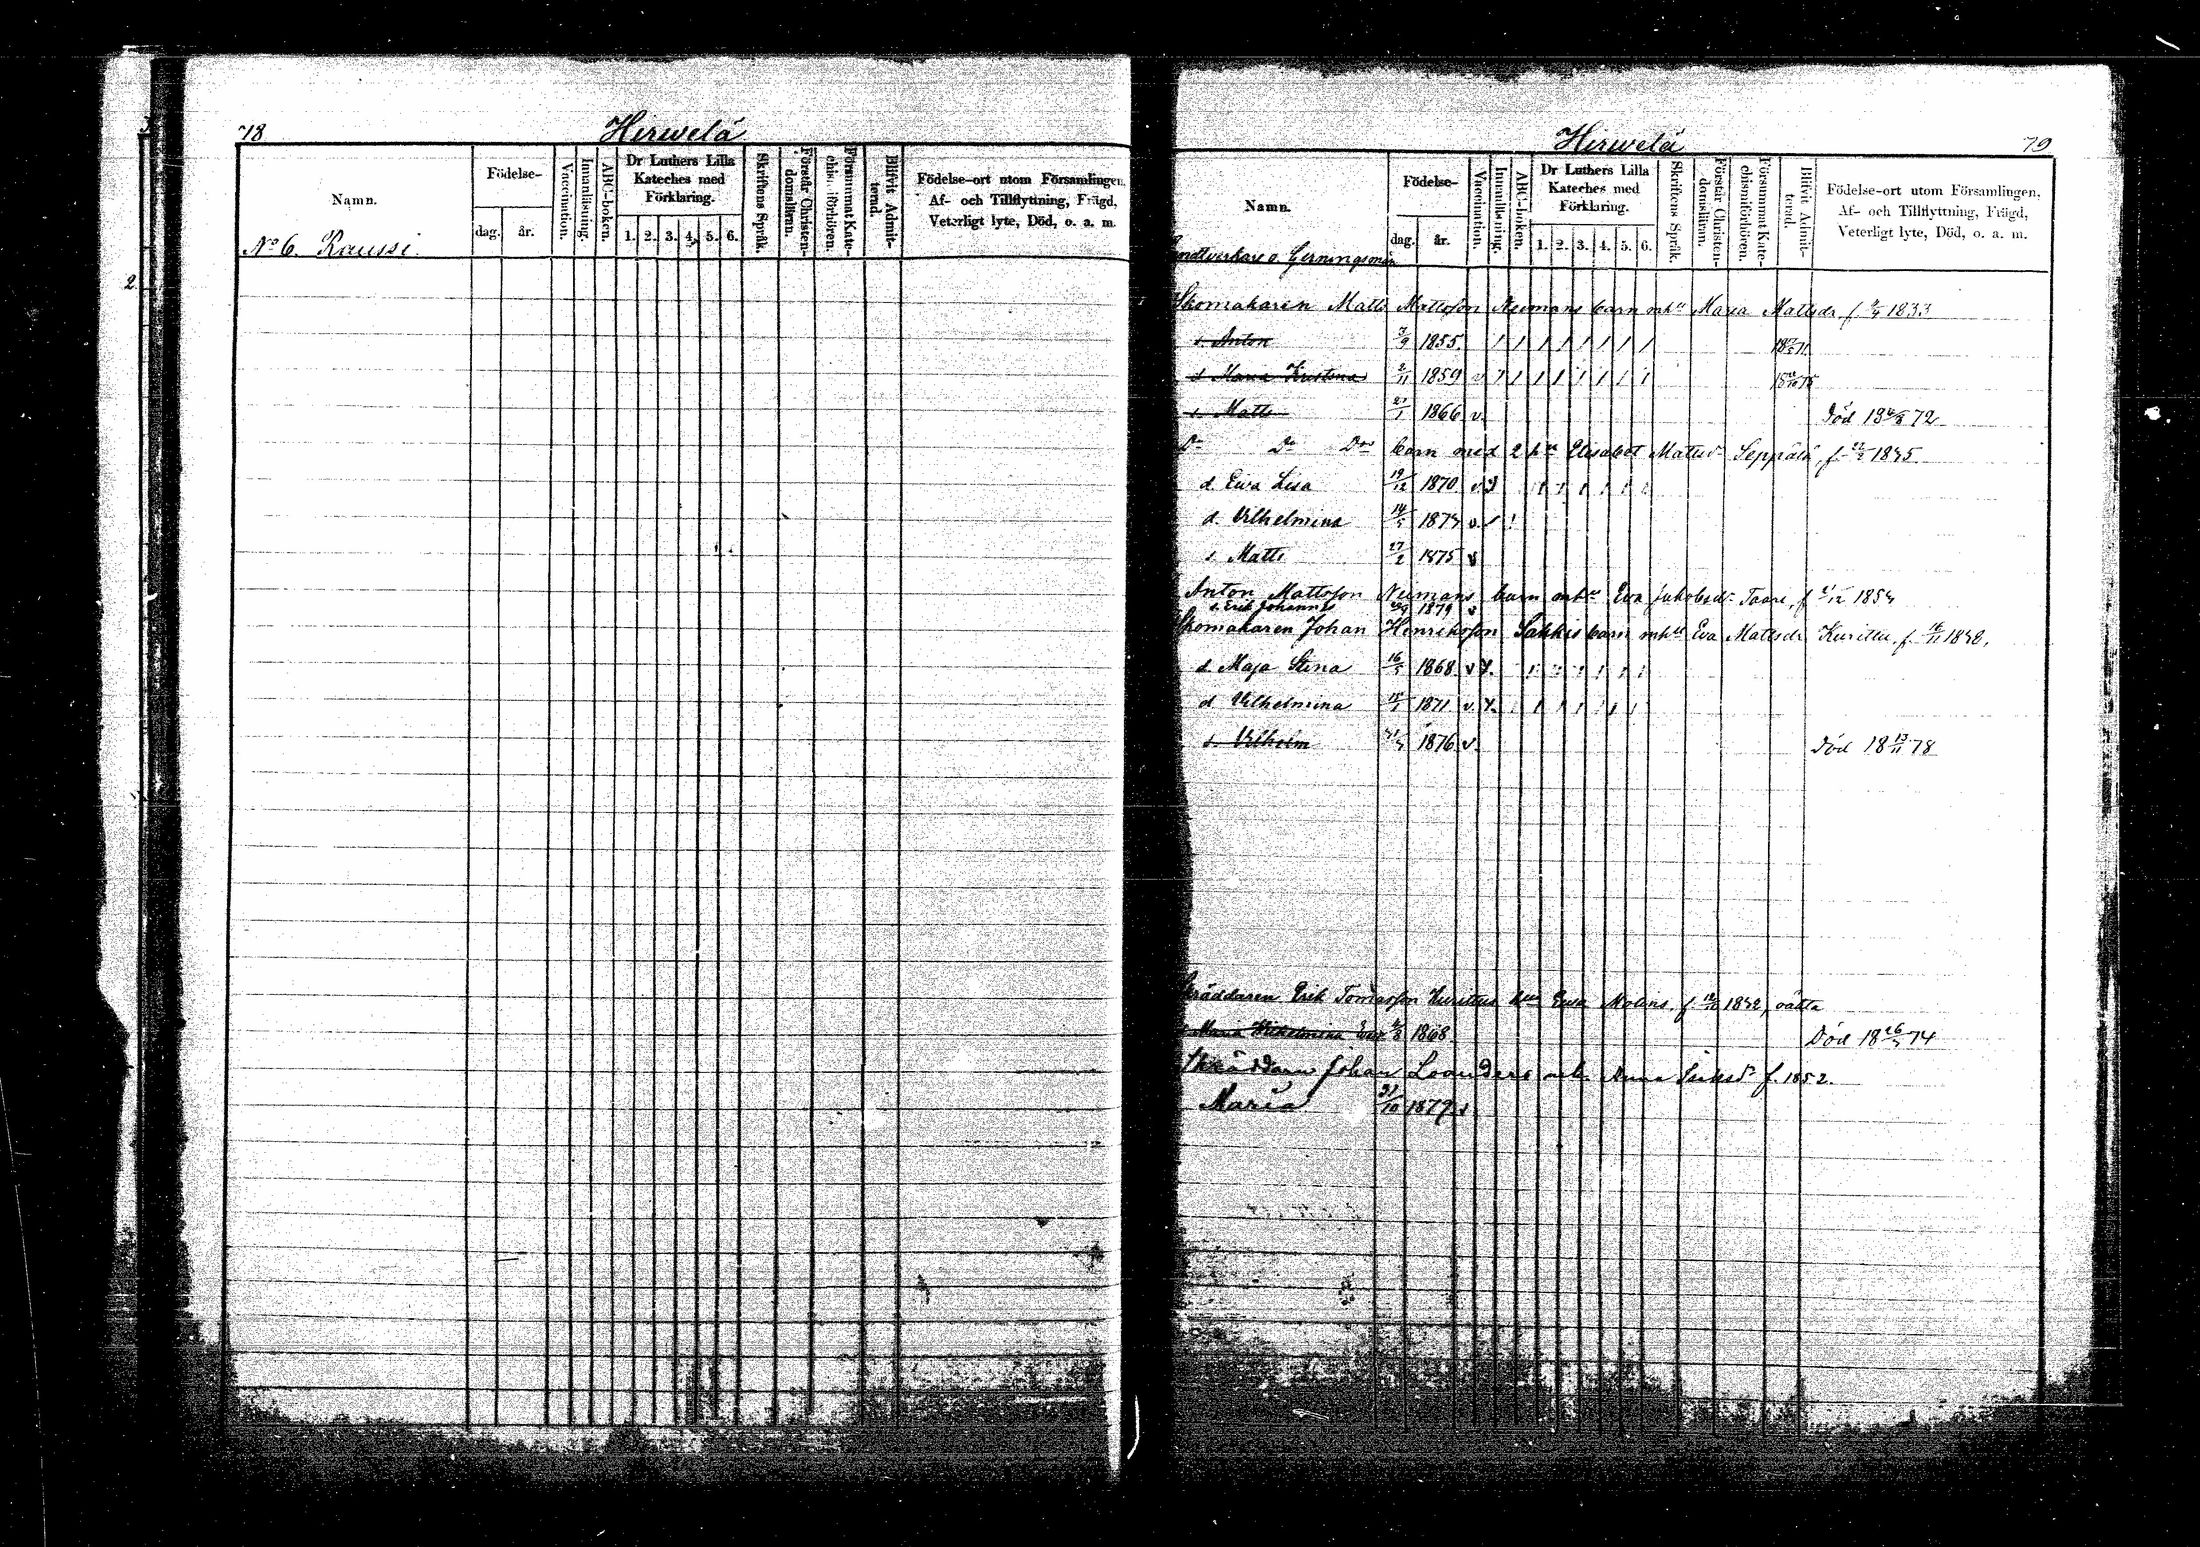 78
Hirwelä
Namn.
Födelse-
dag. år.
Vaccination.
Innanläsning.
ABC-boken.
Dr Luthers Lilla
Kateches med
Förklaring.
1. 2. 3. 4. 5. 6.
Skriftens Språk.
Förstår Christen-
domsläran.
Försummat Kate-
chismiförhören.
Blifvit Admit-
terad.
Födelse-ort utom Församlingen,
Af- och Tillflyttning, Frägd,
Veterligt lyte, Död, o. a. m.
No 6. Raussi.
2
Hirwelä
79
Namn.
Födelse-
dag. år.
Vaccination.
Innanläsning.
ABC-boken.
Dr Luthers Lilla
Kateches med
Förklaring.
1. 2. 3. 4. 5. 6.
Skriftens Språk.
Förstår Christen-
domsläran.
Försummat Kate-
chismiförhören.
Blifvit Admit-
terad.
Födelse-ort utom Församlingen,
Af- och Tillflyttning, Frägd,
Veterligt lyte, Död, o. a. m.
Skomakaren Matts Mattsson Neimans barn mhu Maria Mattsdr f. 1833
s. Anton 3/9 1855.
d Maria Kristina 2/11 1859 v
s. Matts 1866 v. Död 72
Do Do Dos barn med 2 hu Elisabet Mattsdr Seppälä, f. 1845
d. Ewa Lisa 19/12 1870 v
d. Vilhelmina 14/5 1873 v.
s. Matts 27/2 1875 v
Anton Mattsson Neimans barn mhu Eva Jakobsdr Taari, f. 1854
s. Erik Johannes 1879 v
Skomakaren Johan Henriksson Sakkis barn mhu Eva Mattsdr Kurittu, f. 16/11 1842.
d. Maja Stina 16/5 1868 v
d Vilhelmina 1871 v.
s. Vilhelm 1876 v. Död 18 13/11 78
Erik Tomasson Kurittus Ewa Molins, f. 1842,
Maria Vilhelmina 1868 Död 18 74
Skräddaren Johan Leanders Anna f. 1852.
Maria 31/10 1879 v